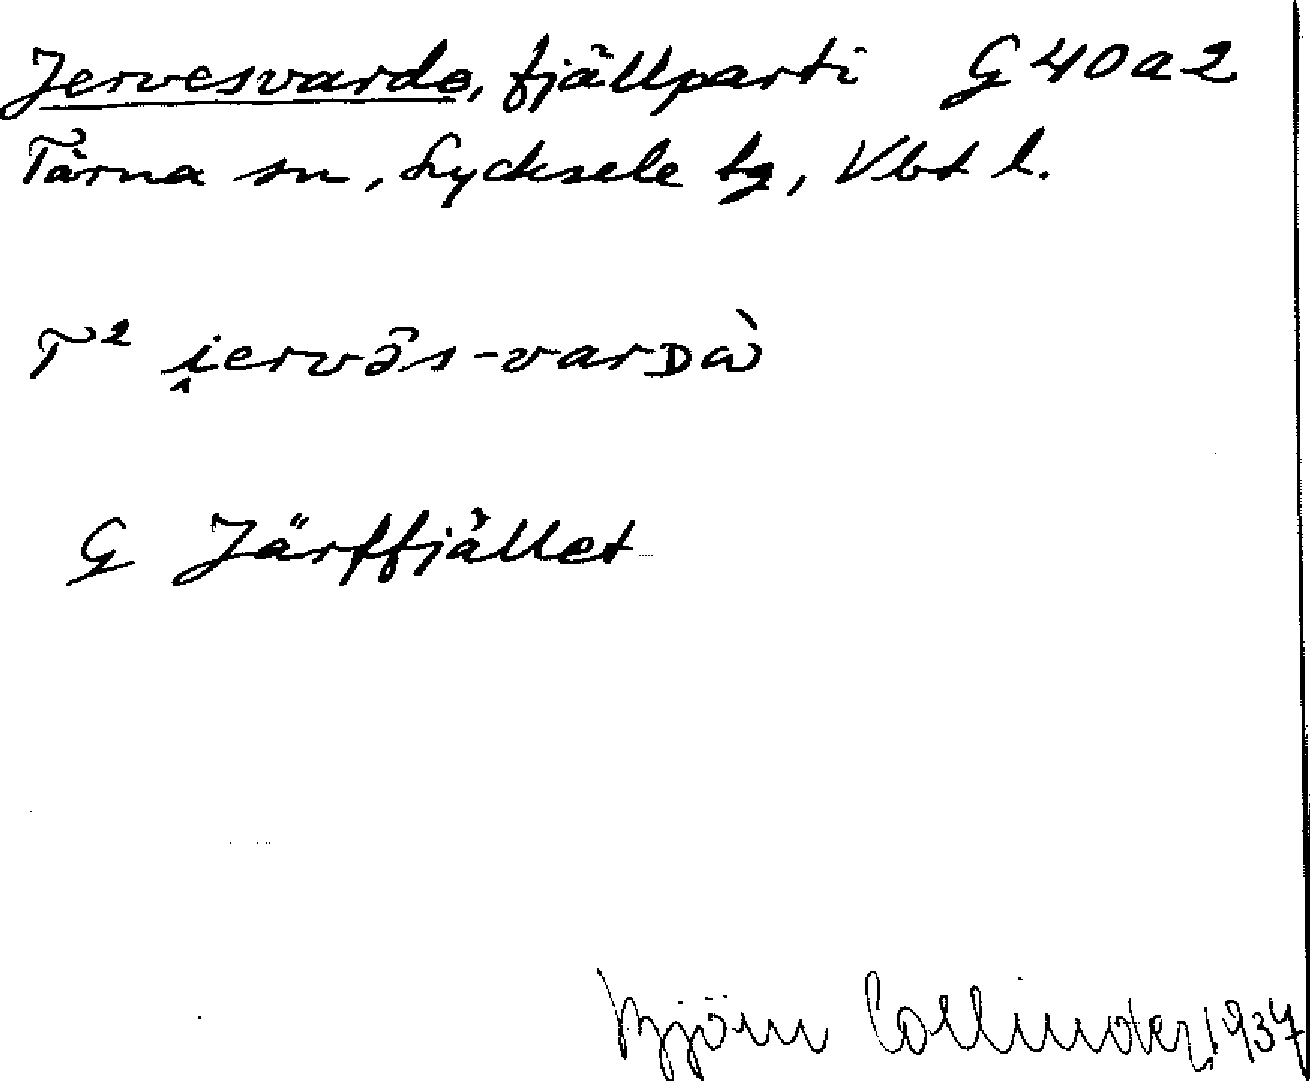 Jervesvardo, fjällparti G 40 a 2
Tärna sn, Lycksele lg, Vbt l.
T² i̭ervə̂s-varDὰ
G Järffjället
Björn Collinder, 1937